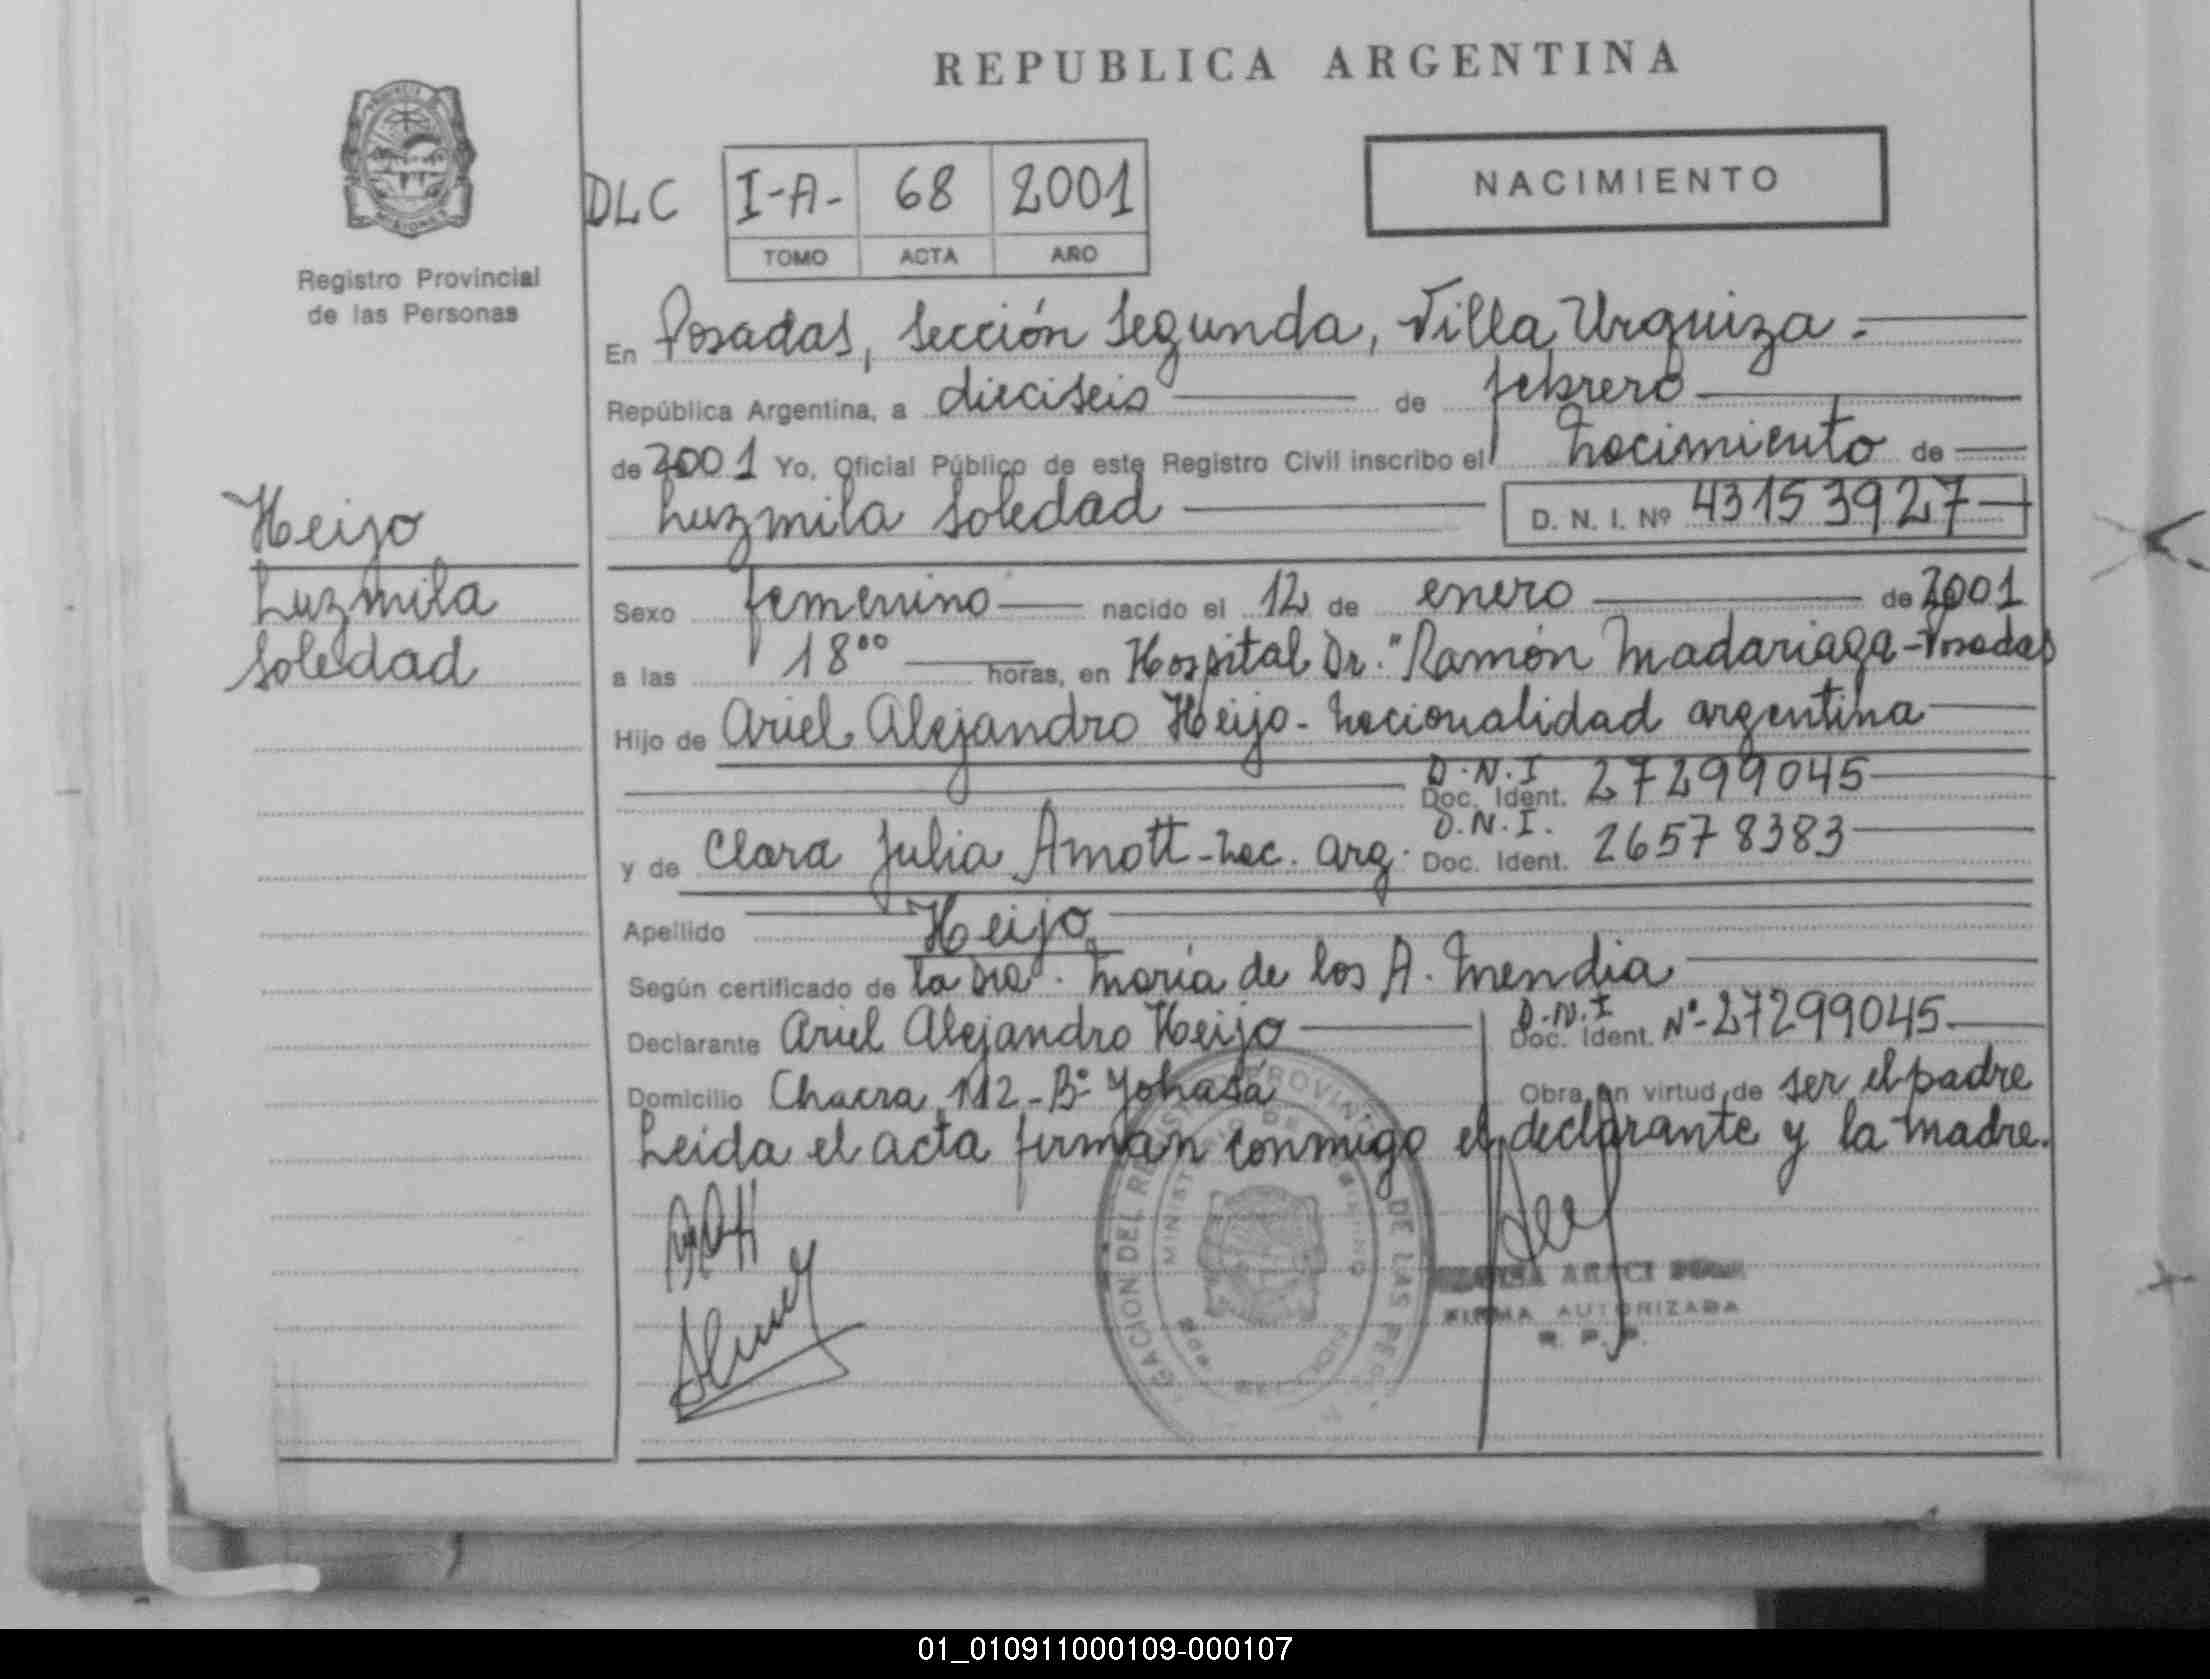 REPUBLICA ARGENTINA
DLC
I-A- 68 2001
TOMO ACTA AÑO
NACIMIENTO
Registro Provincial
de las Personas
Heijo
Luzmila
Soledad
En Posadas, Sección Segunda, Villa Urquiza.
República Argentina, a dieciseis de febrero
de 2001 Yo, Oficial Público de este Registro Civil inscribo el Nacimiento de
Luzmila Soledad D. N. I. Nº 43153927
Sexo femenino nacido el 12 de enero de 2001
a las 18⁰⁰ horas, en Hospital Dr. "Ramón Madariaga - Posadas
Hijo de Ariel Alejandro Heijo - Nacionalidad argentina
D.N.I Doc. Ident. 27299045
y de Clara Julia Amott - Nac. Arg. D.N.I. Doc. Ident. 26578383
Apellido Heijo
Según certificado de la Dra. María de los A. Mendia
Declarante Ariel Alejandro Heijo D.N.I Doc. Ident. Nº- 27299045
Domicilio Chacra 112 - Bº Yohasá Obra en virtud de ser el padre
Leida el acta firman conmigo el declarante y la madre.
FIRMA AUTORIZADA
R. P. P.
01_010911000109-000107